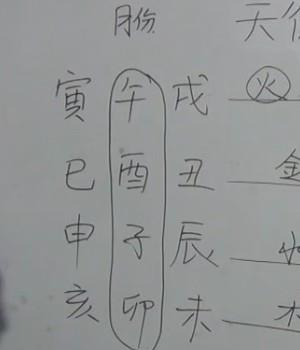 月份 天
寅 午 戌 火
巳 酉 丑 金
申 子 辰 水
亥 卯 未 木